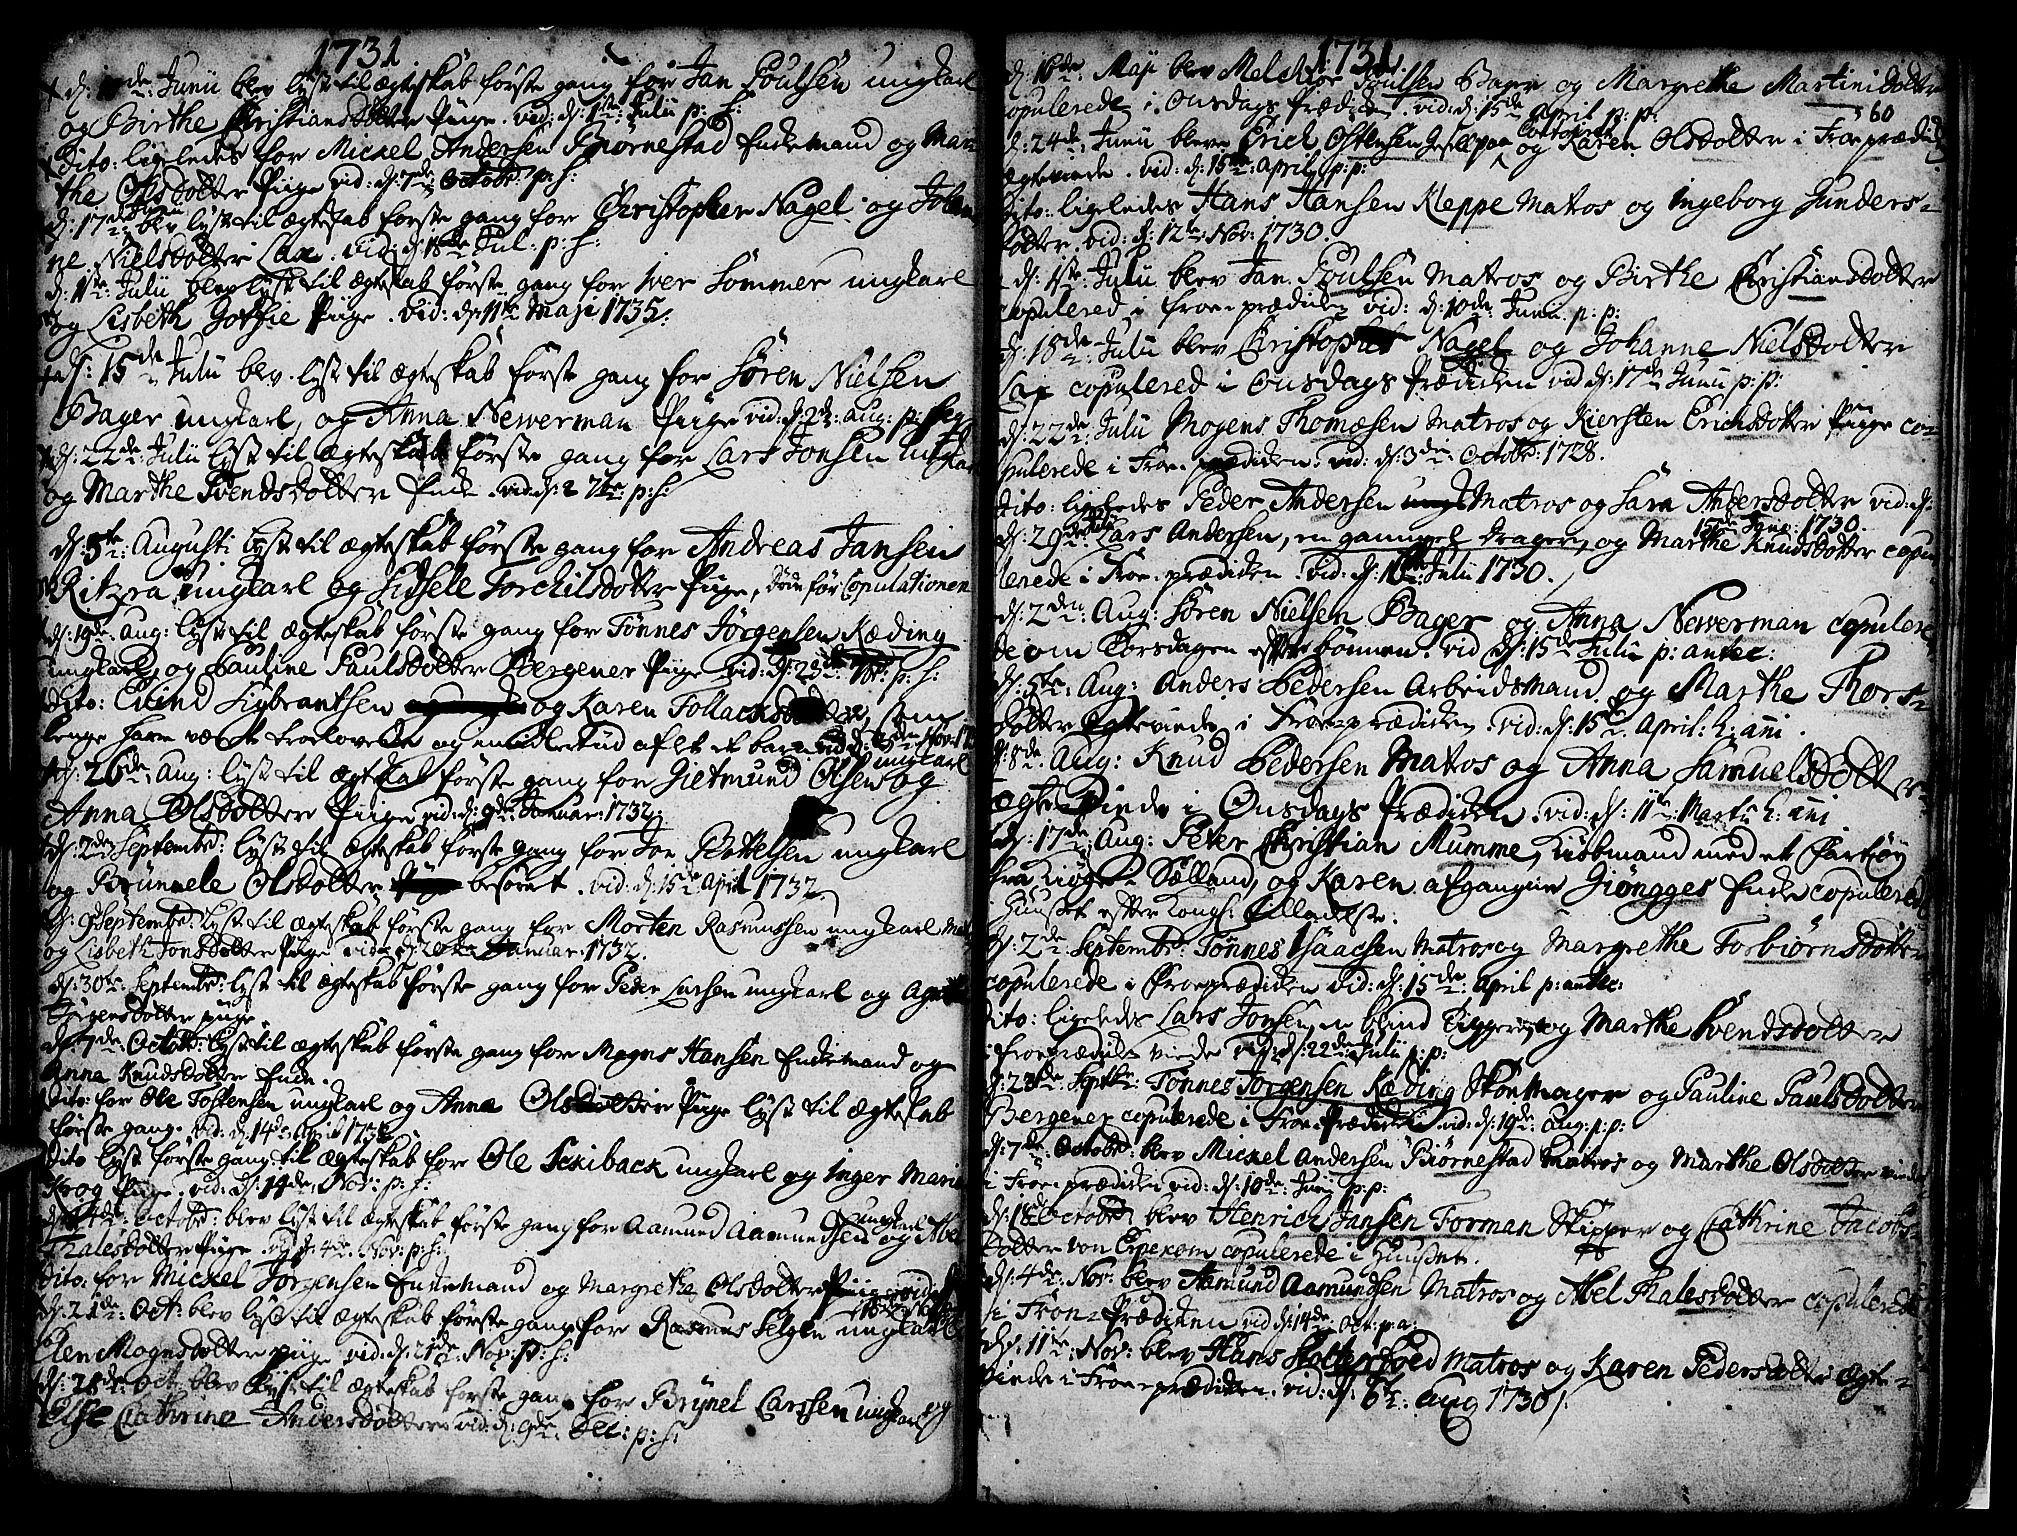 1731
d: 10de Junii blev lyst til ægteskab første gang før Jan Poulsen ungkarl
og Birthe Christiansdotter Piige. vid: d: 1ste Julii p: h:
Dito: ligeledes for Mickel Andersen Biørnestad Enkemand og Mar-
the Olsdotter Piige vid: d: 7de Octobr: p: h:
d: 17de Junii blev lyst til ægteskab første gang for Christopher Nagel og Johan-
ne Nielsdotter Lax. vid: d: 18de Jul: p: h:
d: 1ste Julii blev lyst til ægteskab første gang for Iver Sommer ungkarl
og Lisbeth Giotsie Piige. vid: d: 11te Maji 1735.
d: 15de Julii blev lyst til ægteskab første gang for Søren Nielsen
Bager ungkarl, og Anna Newerman Piige vid: d: 2de aug: p: seq
d: 22de Julii lyst til ægteskab første gang for Lars Jonsen ungkarl
og Marthe Svendsdotter Enke. vid: d: 2 7br: p: h:
d: 5te Augusti lyst til ægteskab første gang for Andreas Jansen
Ritzra ungkarl og Sidsele Torchilsdotter Piige, døde før Copulationen
d: 19de Aug: lyst til ægteskab første gang for Tønnes Jørgensen Kæding
ungkarl, og Pauline Paulsdotter Bergener Piige vid: d: 23de 7br: p: h:
Dito: Eivind Sigbrantsen og Karen Tollachsdotter, som
lenge har været troelovede og imidlertiid aflet et barn vid: d: Nov: 17
d: 26de Aug: lyst til ægteskab første gang for Gietmund Olsen ungkarl og
Anna Olsdotter Piige vid: d: 9de Januar: 1732.
d: 2den Septembr: lyst til ægteskab første gang for Jon Bottelsen ungkarl
og Brünnele Olsdotter besovet. vid: d: 15de April 1732.
d: 9de Septembr: lyst til ægteskab første gang for Morten Rasmussen ungkarl
og Lisbeth Jonsdotter Piige vid: d: 20de Januar: 1732.
d: 30te Septembr: lyst til ægteskab første gang for Peder Larsen ungkarl og
Jørgensdotter piige
d: 7de Octobr: lyst til ægteskab første gang for Mogns Hansen Enkemand og
Anna Knudsdotter Enke.
Dito: for Ole Tostensen ungkarl og Anna Olsdotter Piige lyst til ægteskab
første gang. vid: d: 14de April 1732
Dito lyst første gang til ægteskab for Ole Sckiback ungkarl og Inger Marie
Krog Piige. vid: d: 14de Nov: p: h:
d: 14de Octobr: blev lyst til ægteskab første gang for Aamund Aamundsen ungkarl og Abel
Thalesdotter Piige. vid: d: 4de Nov: p: h:
Dito: for Mickel Jørgensen Enkemand og Margrethe Olsdotter Piige vid:
d: 21de Oct: blev lyst til ægteskab første gang for Rasmus Selgen ungkarl
Elen Mognsdotter piige vid: d: 21de Nov: p: h:
d: 28de Oct: blev lyst til ægteskab første gang for Brynel Carssen ungkarl og
Else Cathrina Andersdotter vid: d: 9de Dec: p: h:
1731
60
d: 16de Maji blev Melchior Poulsen Bager og Margrethe Martinidotter
copulerede i Onsdags Prædiken. vid: d: 15de April p: p:
d: 24de Junii bleve Erich Ostensen Gesell paa og Karen Olsdotter i Froeprædik
ægteviede. vid: d: 15de April p: p:
Dito: ligeledes Hans Hansen Kleppe Matros og Ingeborg Gunders-
dotter. vid: d: 12te Nov: 1730.
d: 1ste Julii blev Jan Poulsen Matros og Birthe Christiansdotter
copulered i froe-prædiken vid: d: 10de Junii p: p:
d: 18de Julii blev Christopher Nagel og Johanne Nielsdotter
Lax copulered i Onsdags Prædiken vid d: 17de Junii p: p:
d: 22de Julii Mogens Thomæsen Matros og Kiersten Erichsdotter Piige co-
pulerede i Froe-prædiken. vid: d: 3die Octobr: 1728.
Dito: ligeledes Peder Andersen Matros og Sara Andersdotter vid: d:
15de 1730.
d: 29de Julii Lars Andersen, en gammel Drager, og Marthe Knudsdotter copu-
lerede i Froe-prædiken. vid: d: 16de Julii 1730.
d: 2den Aug: Søren Nielsen Bager og Anna Newerman copulere-
de om Torsdagen efter bønnen. vid d: 15de Julii p: antec:
d: 5te Aug: Anders Pedersen Arbeidsmand og Marthe Thors-
dotter Egteviede i Froe-prædiken. vid: d: 15de April: h: ani.
d: 8de Aug: Knud Pedersen Matros og Anna Samuelsdotter
ægte-viede i Onsdags Prædiken. vid: d: 11te Martii h: ani
d: 17de Aug: Peter Christian Mumme, Kiøbmand med et Fartøy
fra Kiøge i Sælland, og Karen afgangne Giøngges Enke copulerede
i Huuset efter Kongl: tilladelse.
d: 2de Septembr: Tønnes Isaachsen Matros og Margrethe Torbiørnsdotter
copulerede i Froeprædiken vid: d: 15de April p: antec:
Dito: ligeledes Lars Jonsen, en blind Tiggere, og Marthe Svendsdotter
i froeprædiken viede vid: d: 22de Julii p: p:
d: 23de Septbr: Tønnes Jørgensen Kæding Skoemager og Pauline Paulsdotter
Bergener copulerede i Froe-Prædiken vid: d: 19de Aug: p: p:
d: 7de Octobr: blev Mickel Andersen Biørnestad Matros og Marthe Olsdotter viede
i Froe-prædiken vid: d: 10de Junii p: p:
d: 18de Octobr blev Henrich Jansen Torman Skipper og Cathrine Jacobs-
dotter von copulerede i Huuset.
d: 4de Nov: blev Aamund Aamundsen Matros og Abel Thalesdotter copulerede
i Froe-Prædiken vid d: 14de Oct: p: a:
d: 11te Nov: blev Hans Matros og Karen Pedersdotter ægte-
viede i Froe-prædiken. vid: d: 6te Aug 1730.